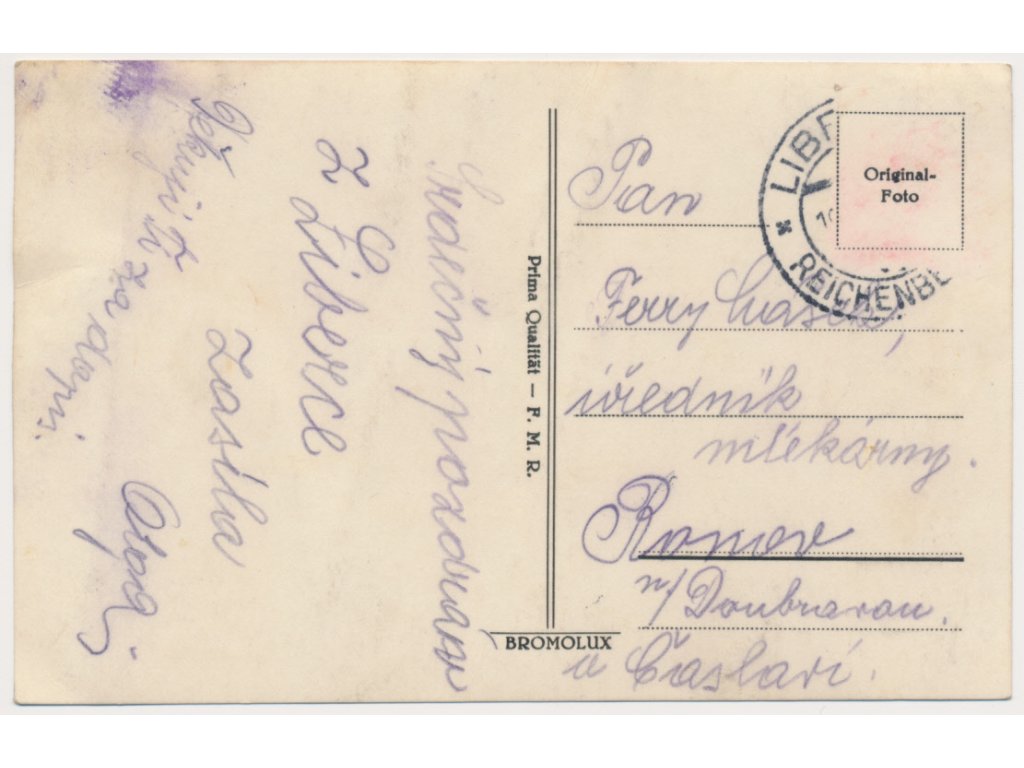 Srdečný pozdrav
z Liberce
zasílá
Olga
Děkuji Ti
za dopis.
Prima Qualität — F. M. R.
BROMOLUX
LIBE
REICHENBE
Original-
Foto
Pan
Ferry
úředník
mlékárny.
Ronov
n/Doubravou.
u Čáslavi.